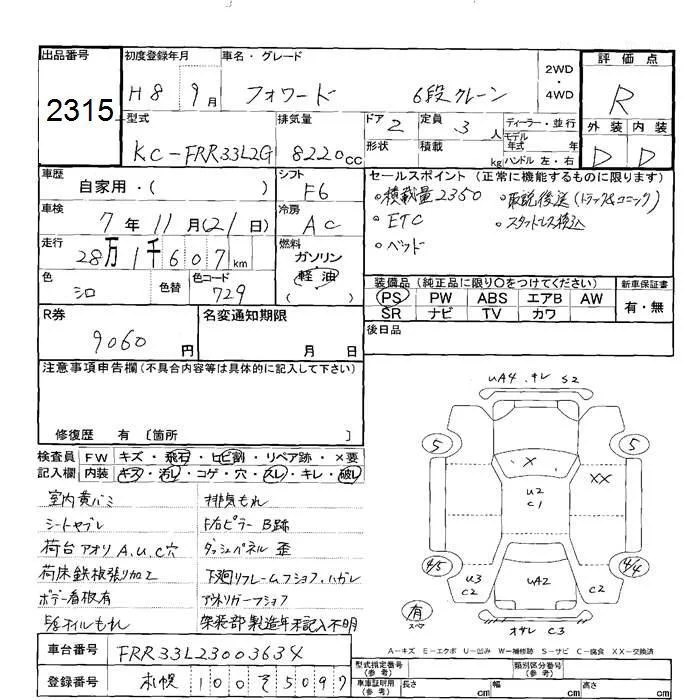 出品番号
2315
初度登録年月
H8 9月
車名・グレード
フォワード 6段クレーン
2WD
・
4WD
評価点
R
外装 内装
D D
型式
KC-FRR33L2G
排気量
8220cc
ドア 2
定員 3人
ディーラー・並行
モデル年式 年
形状
積載 kg
ハンドル 左・右
車歴
自家用・( )
シフト
F6
車検
7年11月(21日)
冷房
AC
走行
28万1千607km
燃料
ガソリン
軽油
( )
色
シロ
色替
色コード
729
セールスポイント (正常に機能するものに限ります)
・積載量2350 ・取説後送(トラック&ユニック)
・ETC ・スタッドレス積込
・ベッド
装備品 (純正品に限り○をつけてください)
PS PW ABS エアB AW
SR ナビ TV カワ
新車保証書
有・無
後日品
R券
9060円
名変通知期限
月 日
注意事項申告欄(不具合内容等は具体的に記入して下さい)
修復歴 有 〔箇所 〕
検査員記入欄
FW キズ・飛石・ヒビ割・リペア跡・×要
内装 キズ・汚レ・コゲ・穴・スレ・キレ・破レ
室内黄バミ 排気もれ
シートヤブレ F右ピラーB跡
荷台アオリA.U.C穴 ダッシュパネル歪
荷床鉄板張り加工 下廻りフレームフショク.ハガレ
ボデー看板有 アオリガーフショク
5/6オイルもれ 架装部製造年未記入不明
UA4.キレ S2
5 5
× ××
U2
C1
4/5 4/4
U3
C2
UA2
C2
有
スペア
オサレ C3
A－キズ E－エクボ U－凹み W－補修跡 S－サビ C－腐食 XX－交換済
車台番号
FRR33L23003634
登録番号
札幌 100そ5097
型式指定番号(参考)
類別区分番号(参考)
車庫証明用(参考)
長さ cm 幅 cm 高さ cm